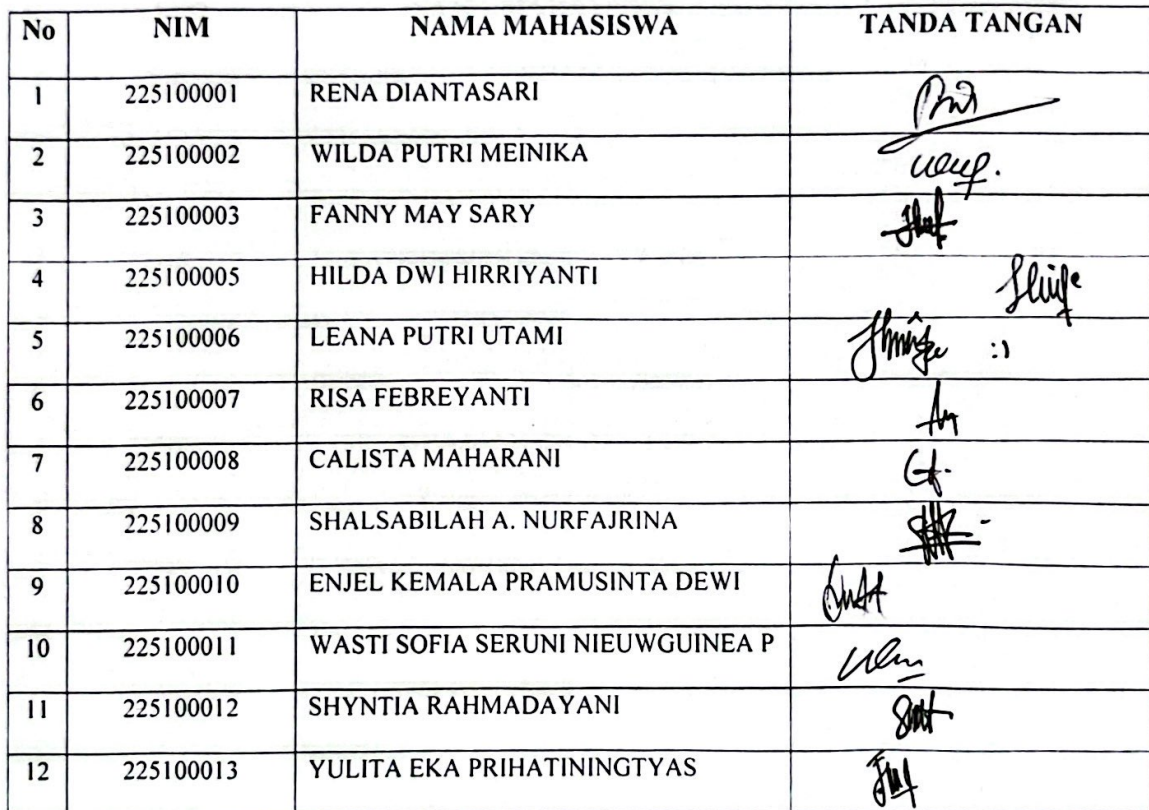 No NIM NAMA MAHASISWA TANDA TANGAN
1 225100001 RENA DIANTASARI
2 225100002 WILDA PUTRI MEINIKA
3 225100003 FANNY MAY SARY
4 225100005 HILDA DWI HIRRIYANTI
5 225100006 LEANA PUTRI UTAMI :)
6 225100007 RISA FEBREYANTI
7 225100008 CALISTA MAHARANI
8 225100009 SHALSABILAH A. NURFAJRINA
9 225100010 ENJEL KEMALA PRAMUSINTA DEWI
10 225100011 WASTI SOFIA SERUNI NIEUWGUINEA P
11 225100012 SHYNTIA RAHMADAYANI
12 225100013 YULITA EKA PRIHATININGTYAS